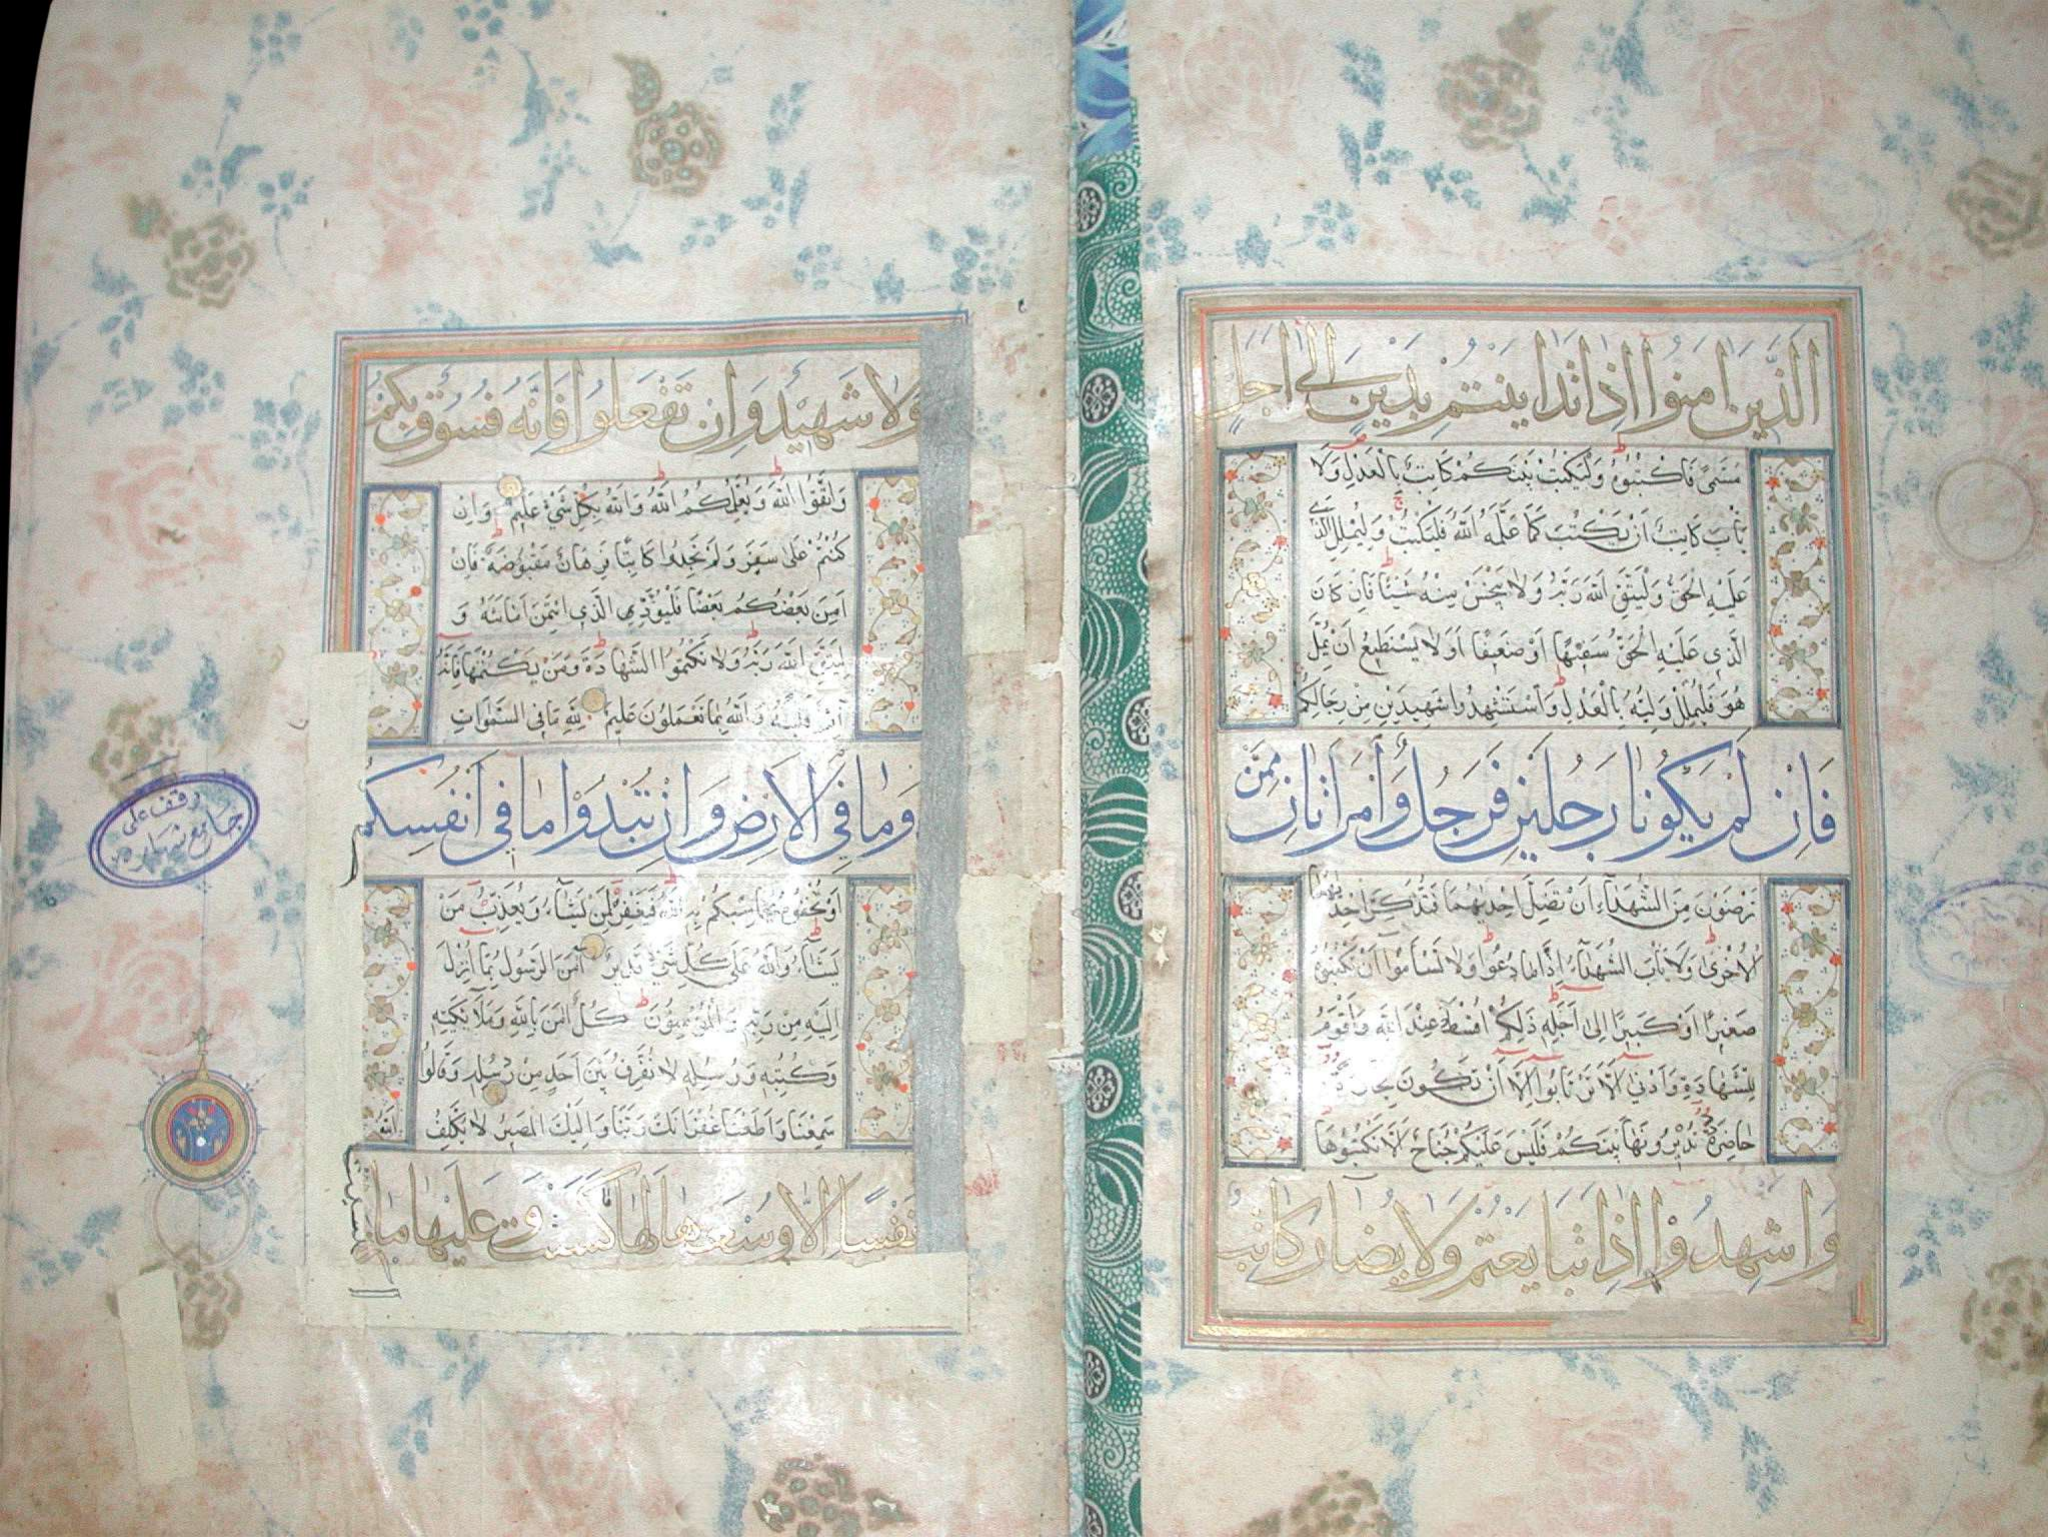 الَّذِينَ اٰمَنُوا اِذَا تَدَايَنْتُمْ بِدَيْنٍ اِلٰى اَجَلٍ
مُسَمًّى فَاكْتُبُوهُ وَلْيَكْتُبْ بَيْنَكُمْ كَاتِبٌ بِالْعَدْلِ وَلَا
يَأْبَ كَاتِبٌ اَنْ يَكْتُبَ كَمَا عَلَّمَهُ اللّٰهُ فَلْيَكْتُبْ وَلْيُمْلِلِ الَّذِى
عَلَيْهِ الْحَقُّ وَلْيَتَّقِ اللّٰهَ رَبَّهُ وَلَا يَبْخَسْ مِنْهُ شَيْئًا فَاِنْ كَانَ
الَّذِى عَلَيْهِ الْحَقُّ سَفِيهًا اَوْ ضَعِيفًا اَوْ لَا يَسْتَطِيعُ اَنْ يُمِلَّ
هُوَ فَلْيُمْلِلْ وَلِيُّهُ بِالْعَدْلِ وَاسْتَشْهِدُوا شَهِيدَيْنِ مِنْ رِجَالِكُمْ
فَاِنْ لَمْ يَكُونَا رَجُلَيْنِ فَرَجُلٌ وَامْرَاَتَانِ مِمَّنْ
تَرْضَوْنَ مِنَ الشُّهَدَاءِ اَنْ تَضِلَّ اِحْدٰيهُمَا فَتُذَكِّرَ اِحْدٰيهُمَا
الْاُخْرٰى وَلَا يَأْبَ الشُّهَدَاءُ اِذَا مَا دُعُوا وَلَا تَسْأَمُوا اَنْ تَكْتُبُوهُ
صَغِيرًا اَوْ كَبِيرًا اِلٰى اَجَلِهِ ذٰلِكُمْ اَقْسَطُ عِنْدَ اللّٰهِ وَاَقْوَمُ
لِلشَّهَادَةِ وَاَدْنٰى اَلَّا تَرْتَابُوا اِلَّا اَنْ تَكُونَ تِجَارَةً
حَاضِرَةً تُدِيرُونَهَا بَيْنَكُمْ فَلَيْسَ عَلَيْكُمْ جُنَاحٌ اَلَّا تَكْتُبُوهَا
وَاَشْهِدُوا اِذَا تَبَايَعْتُمْ وَلَا يُضَارَّ كَاتِبٌ
وَلَا شَهِيدٌ وَاِنْ تَفْعَلُوا فَاِنَّهُ فُسُوقٌ بِكُمْ
وَاتَّقُوا اللّٰهَ وَيُعَلِّمُكُمُ اللّٰهُ وَاللّٰهُ بِكُلِّ شَيْءٍ عَلِيمٌ وَاِنْ
كُنْتُمْ عَلٰى سَفَرٍ وَلَمْ تَجِدُوا كَاتِبًا فَرِهَانٌ مَقْبُوضَةٌ فَاِنْ
اَمِنَ بَعْضُكُمْ بَعْضًا فَلْيُؤَدِّ الَّذِى اؤْتُمِنَ اَمَانَتَهُ وَ
لْيَتَّقِ اللّٰهَ رَبَّهُ وَلَا تَكْتُمُوا الشَّهَادَةَ وَمَنْ يَكْتُمْهَا فَاِنَّهُ
اٰثِمٌ قَلْبُهُ وَاللّٰهُ بِمَا تَعْمَلُونَ عَلِيمٌ لِلّٰهِ مَا فِى السَّمٰوَاتِ
وَمَا فِى الْاَرْضِ وَاِنْ تُبْدُوا مَا فِى اَنْفُسِكُمْ
اَوْ تُخْفُوهُ يُحَاسِبْكُمْ بِهِ اللّٰهُ فَيَغْفِرُ لِمَنْ يَشَاءُ وَيُعَذِّبُ مَنْ
يَشَاءُ وَاللّٰهُ عَلٰى كُلِّ شَيْءٍ قَدِيرٌ اٰمَنَ الرَّسُولُ بِمَا اُنْزِلَ
اِلَيْهِ مِنْ رَبِّهِ وَالْمُؤْمِنُونَ كُلٌّ اٰمَنَ بِاللّٰهِ وَمَلَائِكَتِهِ
وَكُتُبِهِ وَرُسُلِهِ لَا نُفَرِّقُ بَيْنَ اَحَدٍ مِنْ رُسُلِهِ وَقَالُوا
سَمِعْنَا وَاَطَعْنَا غُفْرَانَكَ رَبَّنَا وَاِلَيْكَ الْمَصِيرُ لَا يُكَلِّفُ اللّٰهُ
نَفْسًا اِلَّا وُسْعَهَا لَهَا مَا كَسَبَتْ وَعَلَيْهَا مَا
وقف على
جامع شهاره